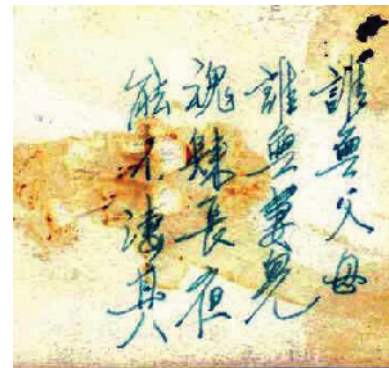 誰無父母
誰無妻兒
魂長夜
能不淒其